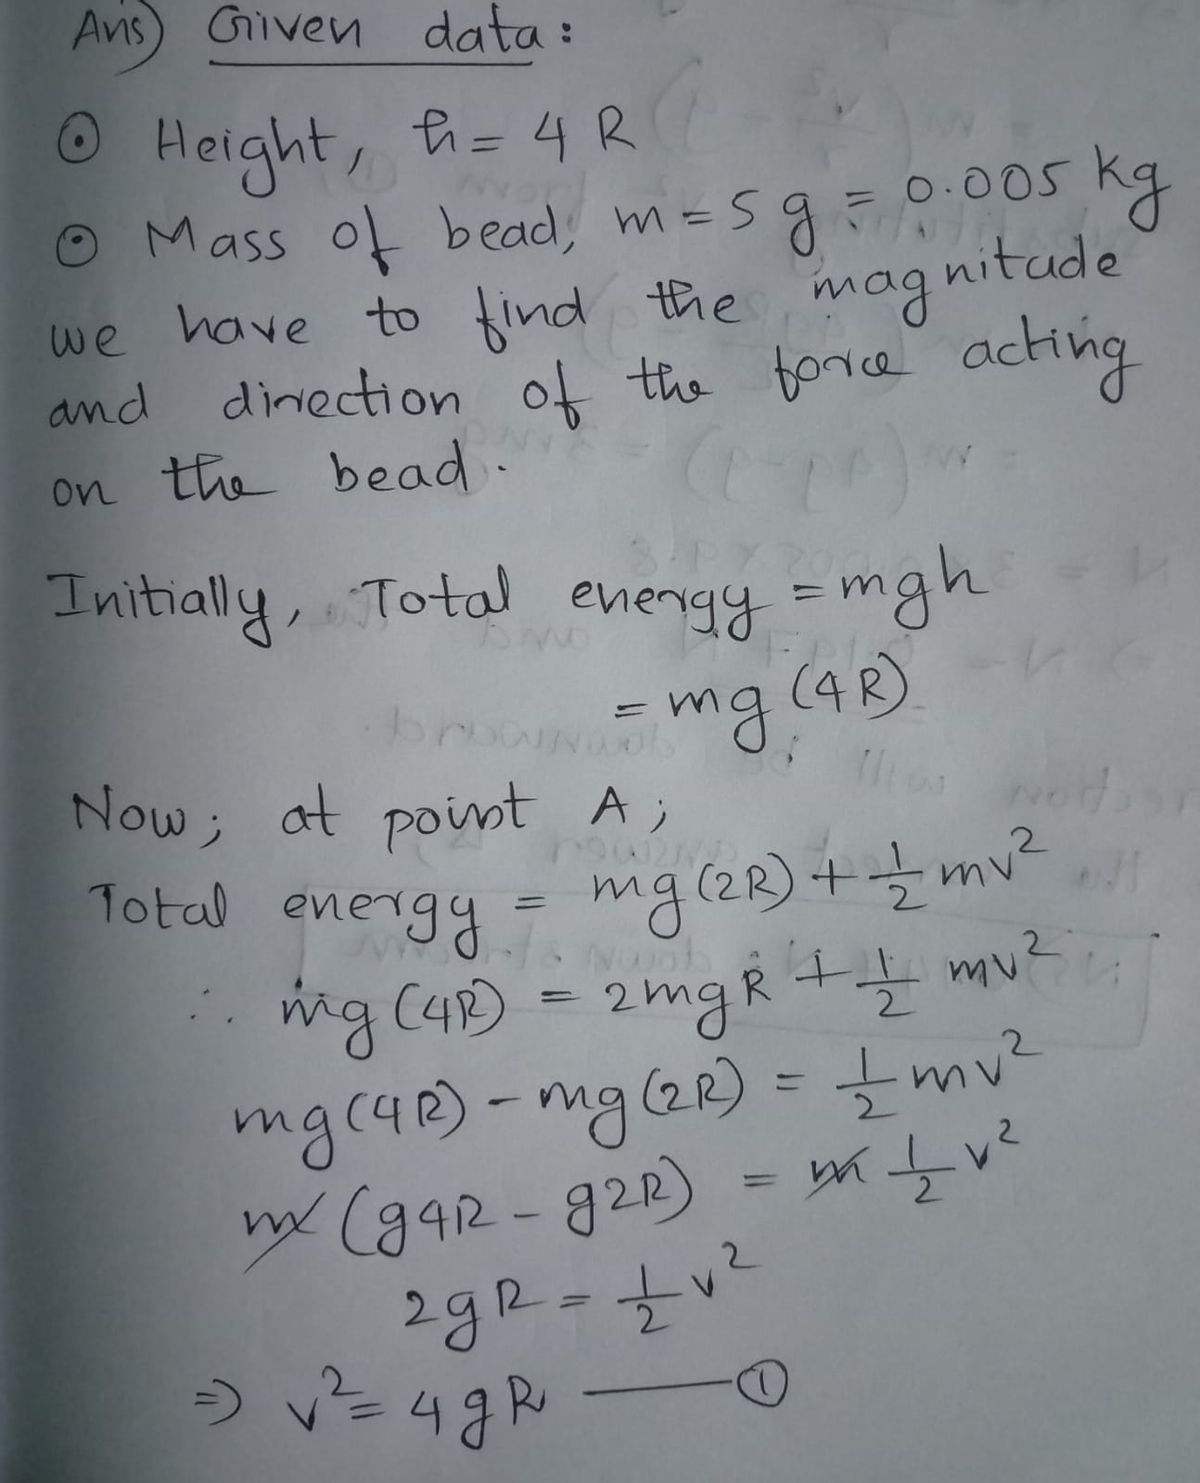 Ans) Given data:
⊙ Height, h = 4 R
⊙ Mass of bead, m = 5 g = 0.005 kg
we have to find the magnitude
and direction of the force acting
on the bead.
Initially, Total energy = mgh
= mg (4R)
Now; at point A;
Total energy = mg(2R) + 1/2 mv²
∴ mg(4R) = 2mgR + 1/2 mv²
mg(4R) - mg(2R) = 1/2 mv²
m(g4R - g2R) = m 1/2 v²
2gR = 1/2 v²
⇒ v² = 4gR —— ①